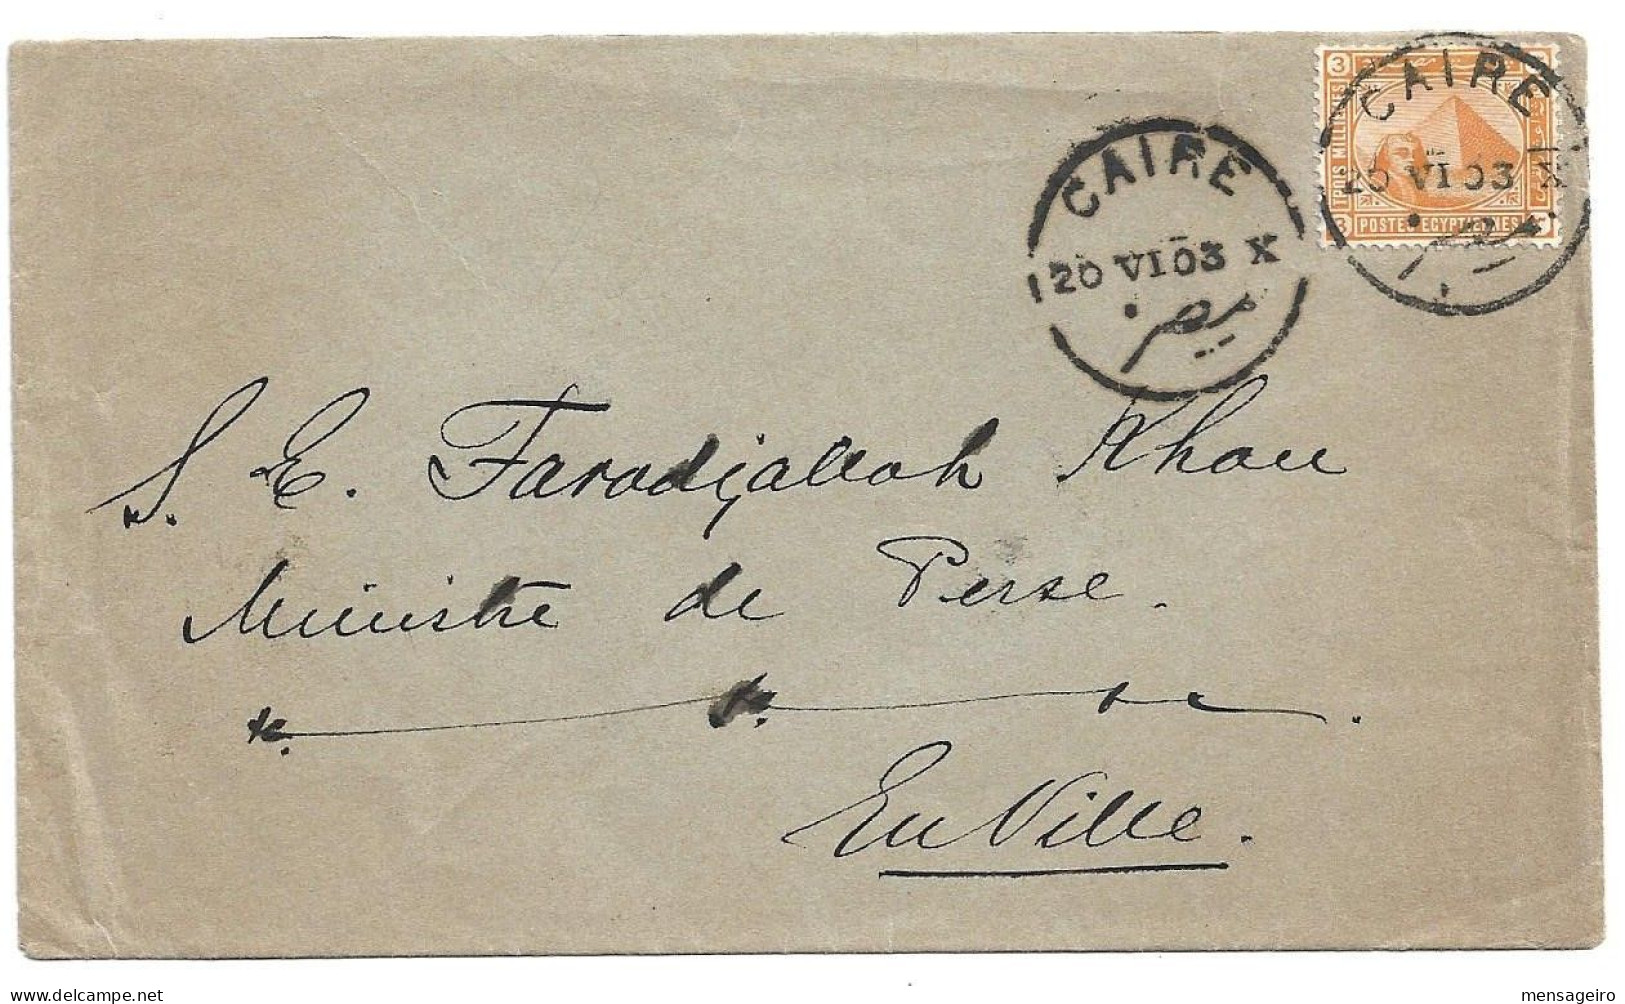 CAIRE
20 VI 03 X
مصر
CAIRE
20 VI 03 X
مصر
3
TROIS MILLIEMES
3 POSTES EGYPTIENNES
S. E. Faradjallah Khan
Ministre de Perse.
En Ville.
mensageiro